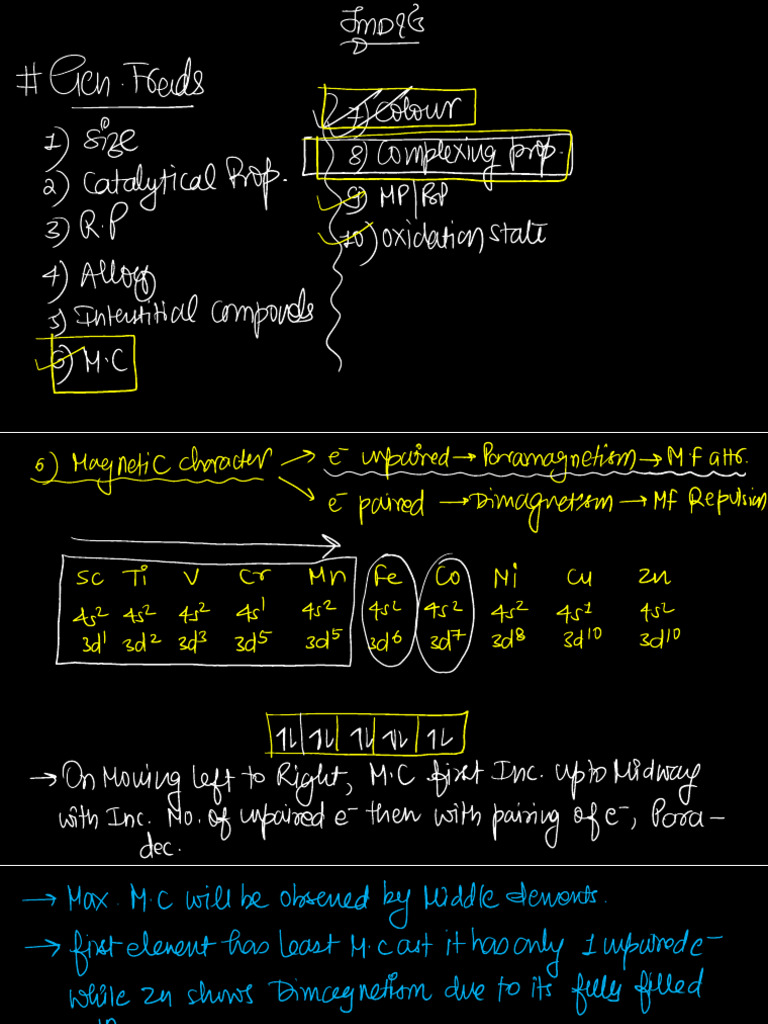 # Gen. Trends
1) Size
2) Catalytical Prop.
3) R.P
4) Alloy
5) Interstitial compounds
6) M.C
7) Colour
8) Complexing prop.
9) MP/BP
10) Oxidation state
6) Magnetic character → e⁻ unpaired → Parramagnetism → M.f attr.
→ e⁻ paired → Dimagnetism → Mf Repulsion
Sc Ti V Cr Mn Fe Co Ni Cu Zn
4s² 4s² 4s² 4s¹ 4s² 4s² 4s² 4s² 4s¹ 4s²
3d¹ 3d² 3d³ 3d⁵ 3d⁵ 3d⁶ 3d⁷ 3d⁸ 3d¹⁰ 3d¹⁰
1L 1L 1L 1L 1L
→ On Moving left to Right, M.C first Inc. upto Midway
with Inc. No. of unpaired e⁻ then with pairing of e⁻, Para –
dec.
→ Max. M.C will be observed by Middle elements.
→ first element has least M.C as it has only 1 unpaired e⁻
while Zn shows Dimagnetism due to its fully filled